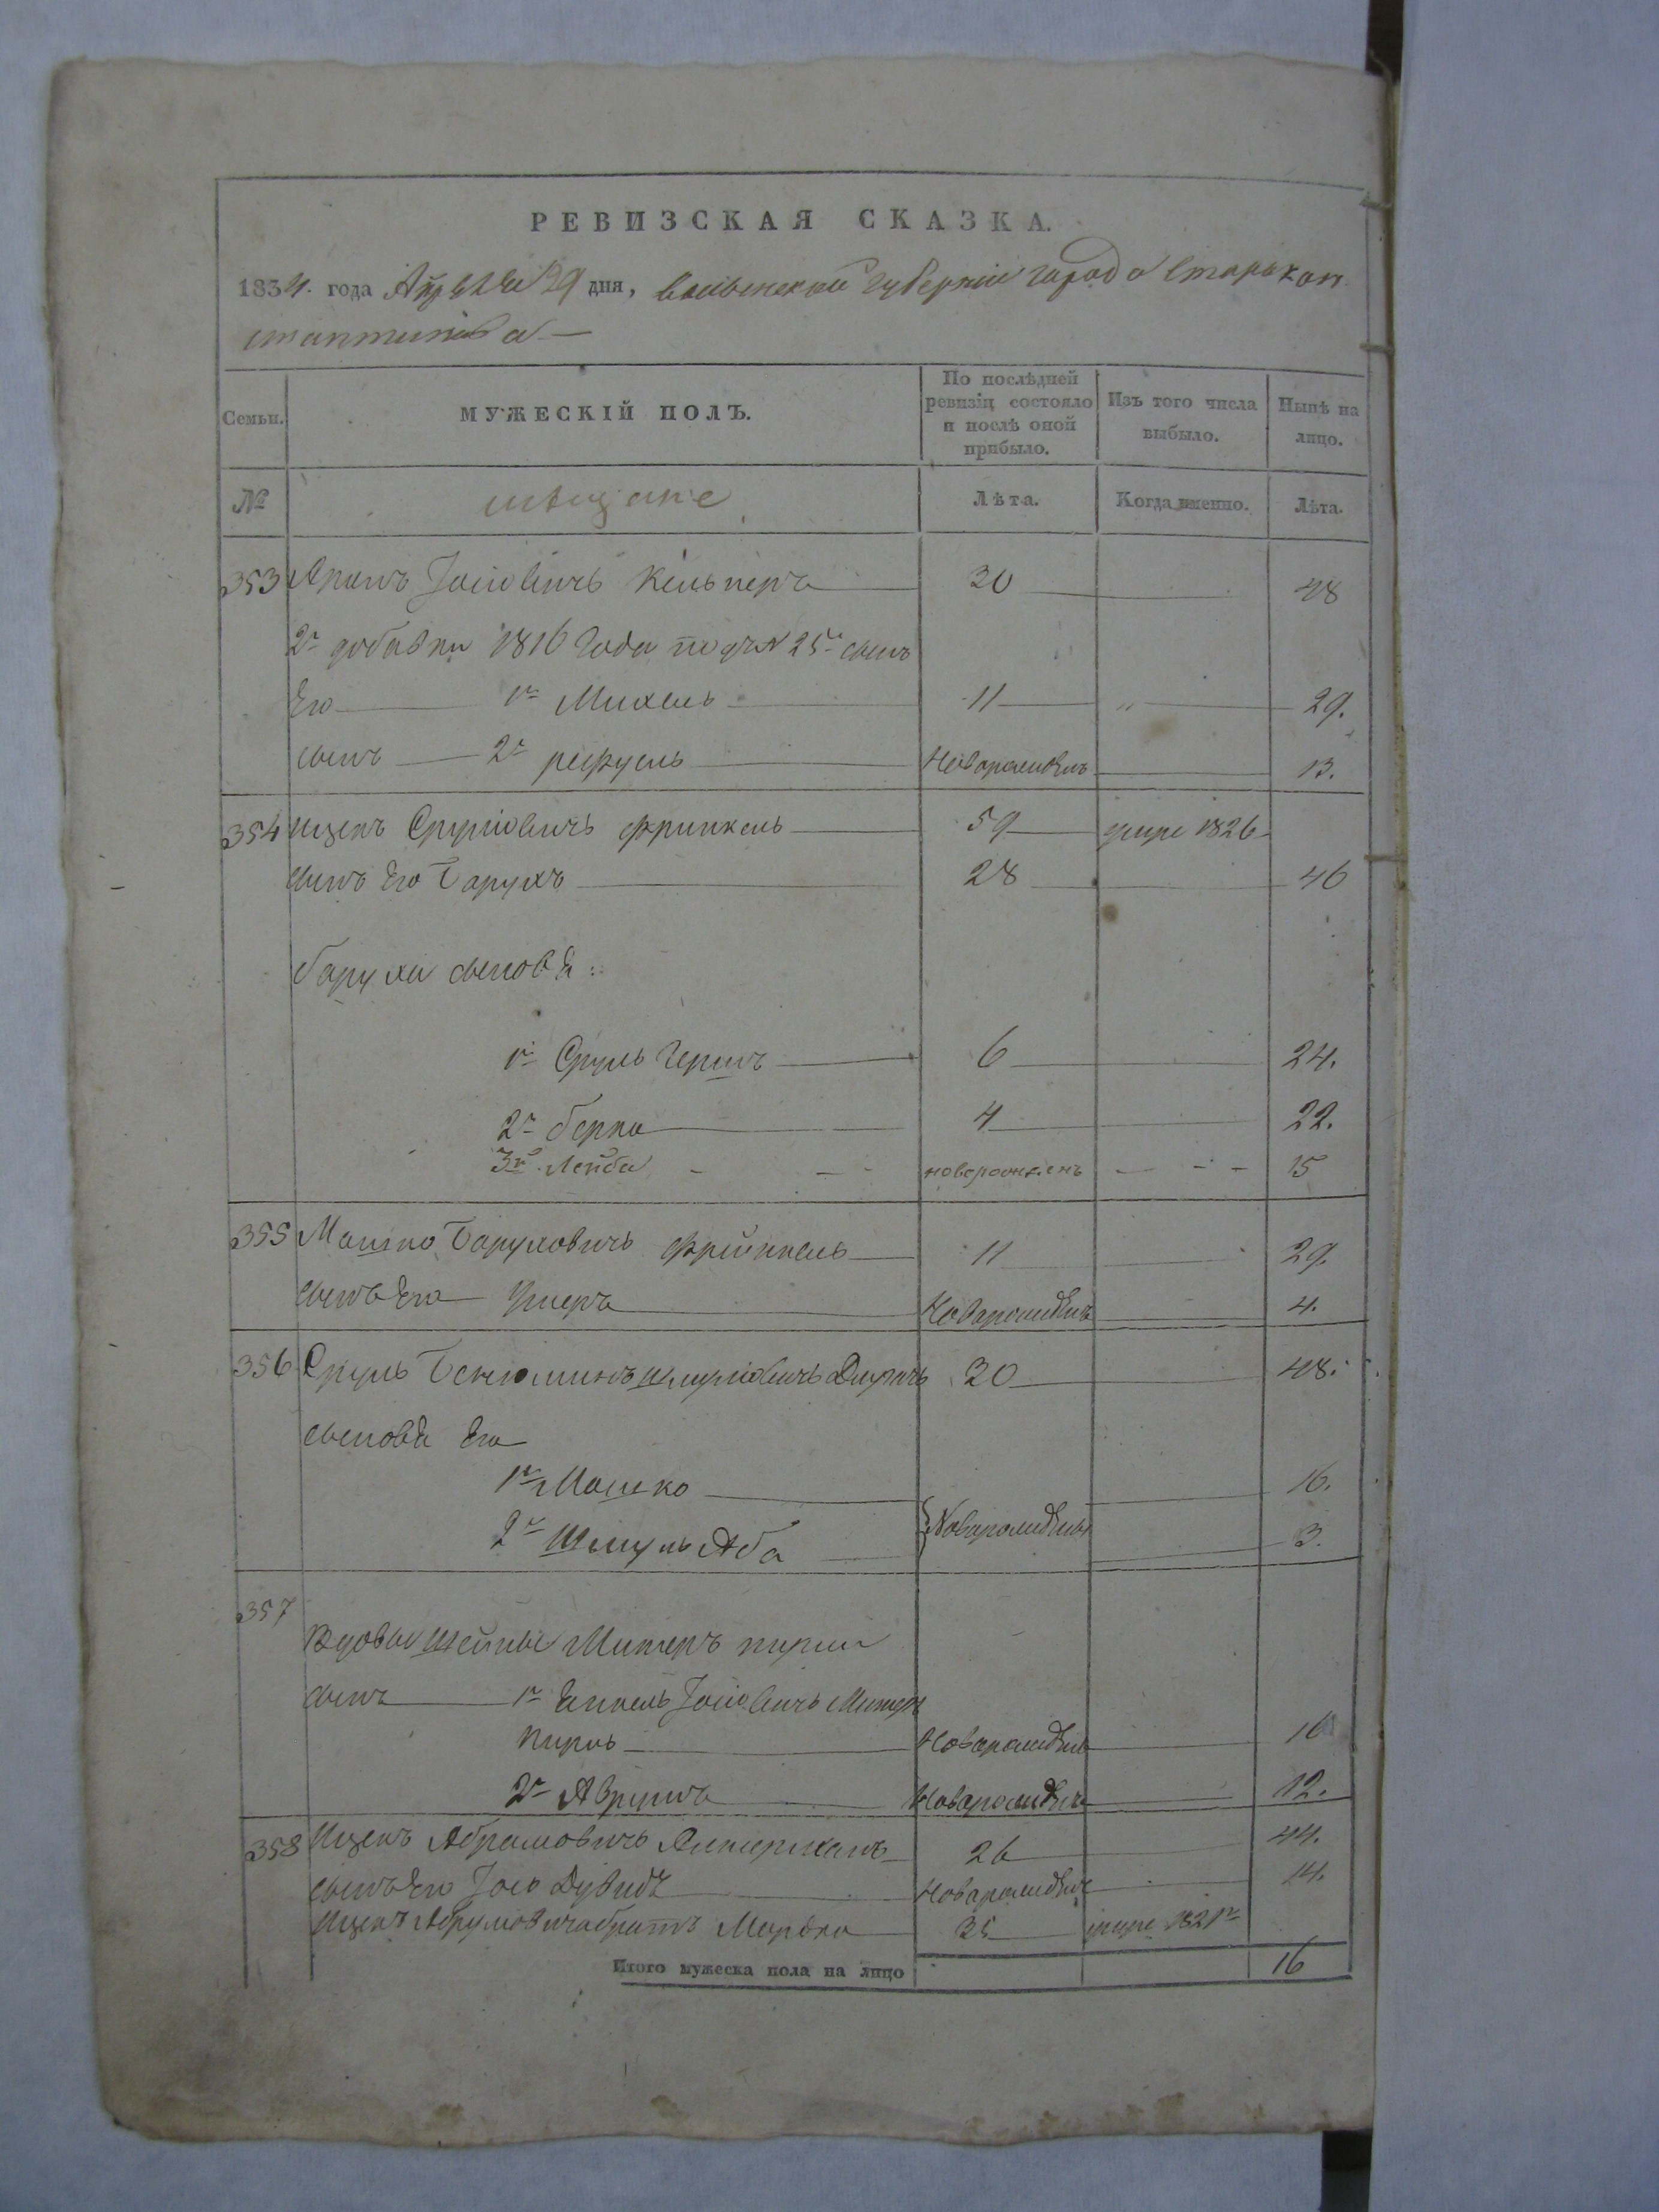 РЕВИЗСКАЯ СКАЗКА.
1834. года Апрѣля 29 дня, волынской губерніи города Старокон
стантинова —
Семьи. МУЖЕСКІЙ ПОЛЪ. По послѣдней ревизіи состояло и послѣ оной прибыло. Изъ того числа выбыло. Нынѣ на лицо.
№ мѣщане Лѣта. Когда именно. Лѣта.
353 Аронъ Іосіовичъ 30 48
2й добавки 1816 года подъ № 25м сынъ
Его 1й Михель 11 " 29.
сынъ 2й рефуель Новорожденъ 13.
354 Ицекъ Срулiовичъ 59 умре 1826
сынъ Его Барухъ 28 46
баруха сыновья:
1й Сруль Гершъ 6 24.
2й берко 4 22.
3й Лейба новорожденъ 15
355 Мошко Баруховичъ 11 29.
сынъ Его Новорожденъ 4.
356 Сруль Бенюминъ Шмулiовичъ 30 48.
сыновья Его
1й Мошко 16.
2й Шмуль Аба Новорожденъ 3.
357
Вдовы Шейны
сынъ 1й Іосіовичъ
Новорожденъ 16
2й Аврумъ Новорожденъ 12.
358 Ицекъ Абрамовичъ 26 44.
сынъ Его Іосъ Дувидъ Новорожденъ 14.
Ицека Абрумовича братъ Мордко 35 умре 1821го
Итого мужеска пола на лицо 16